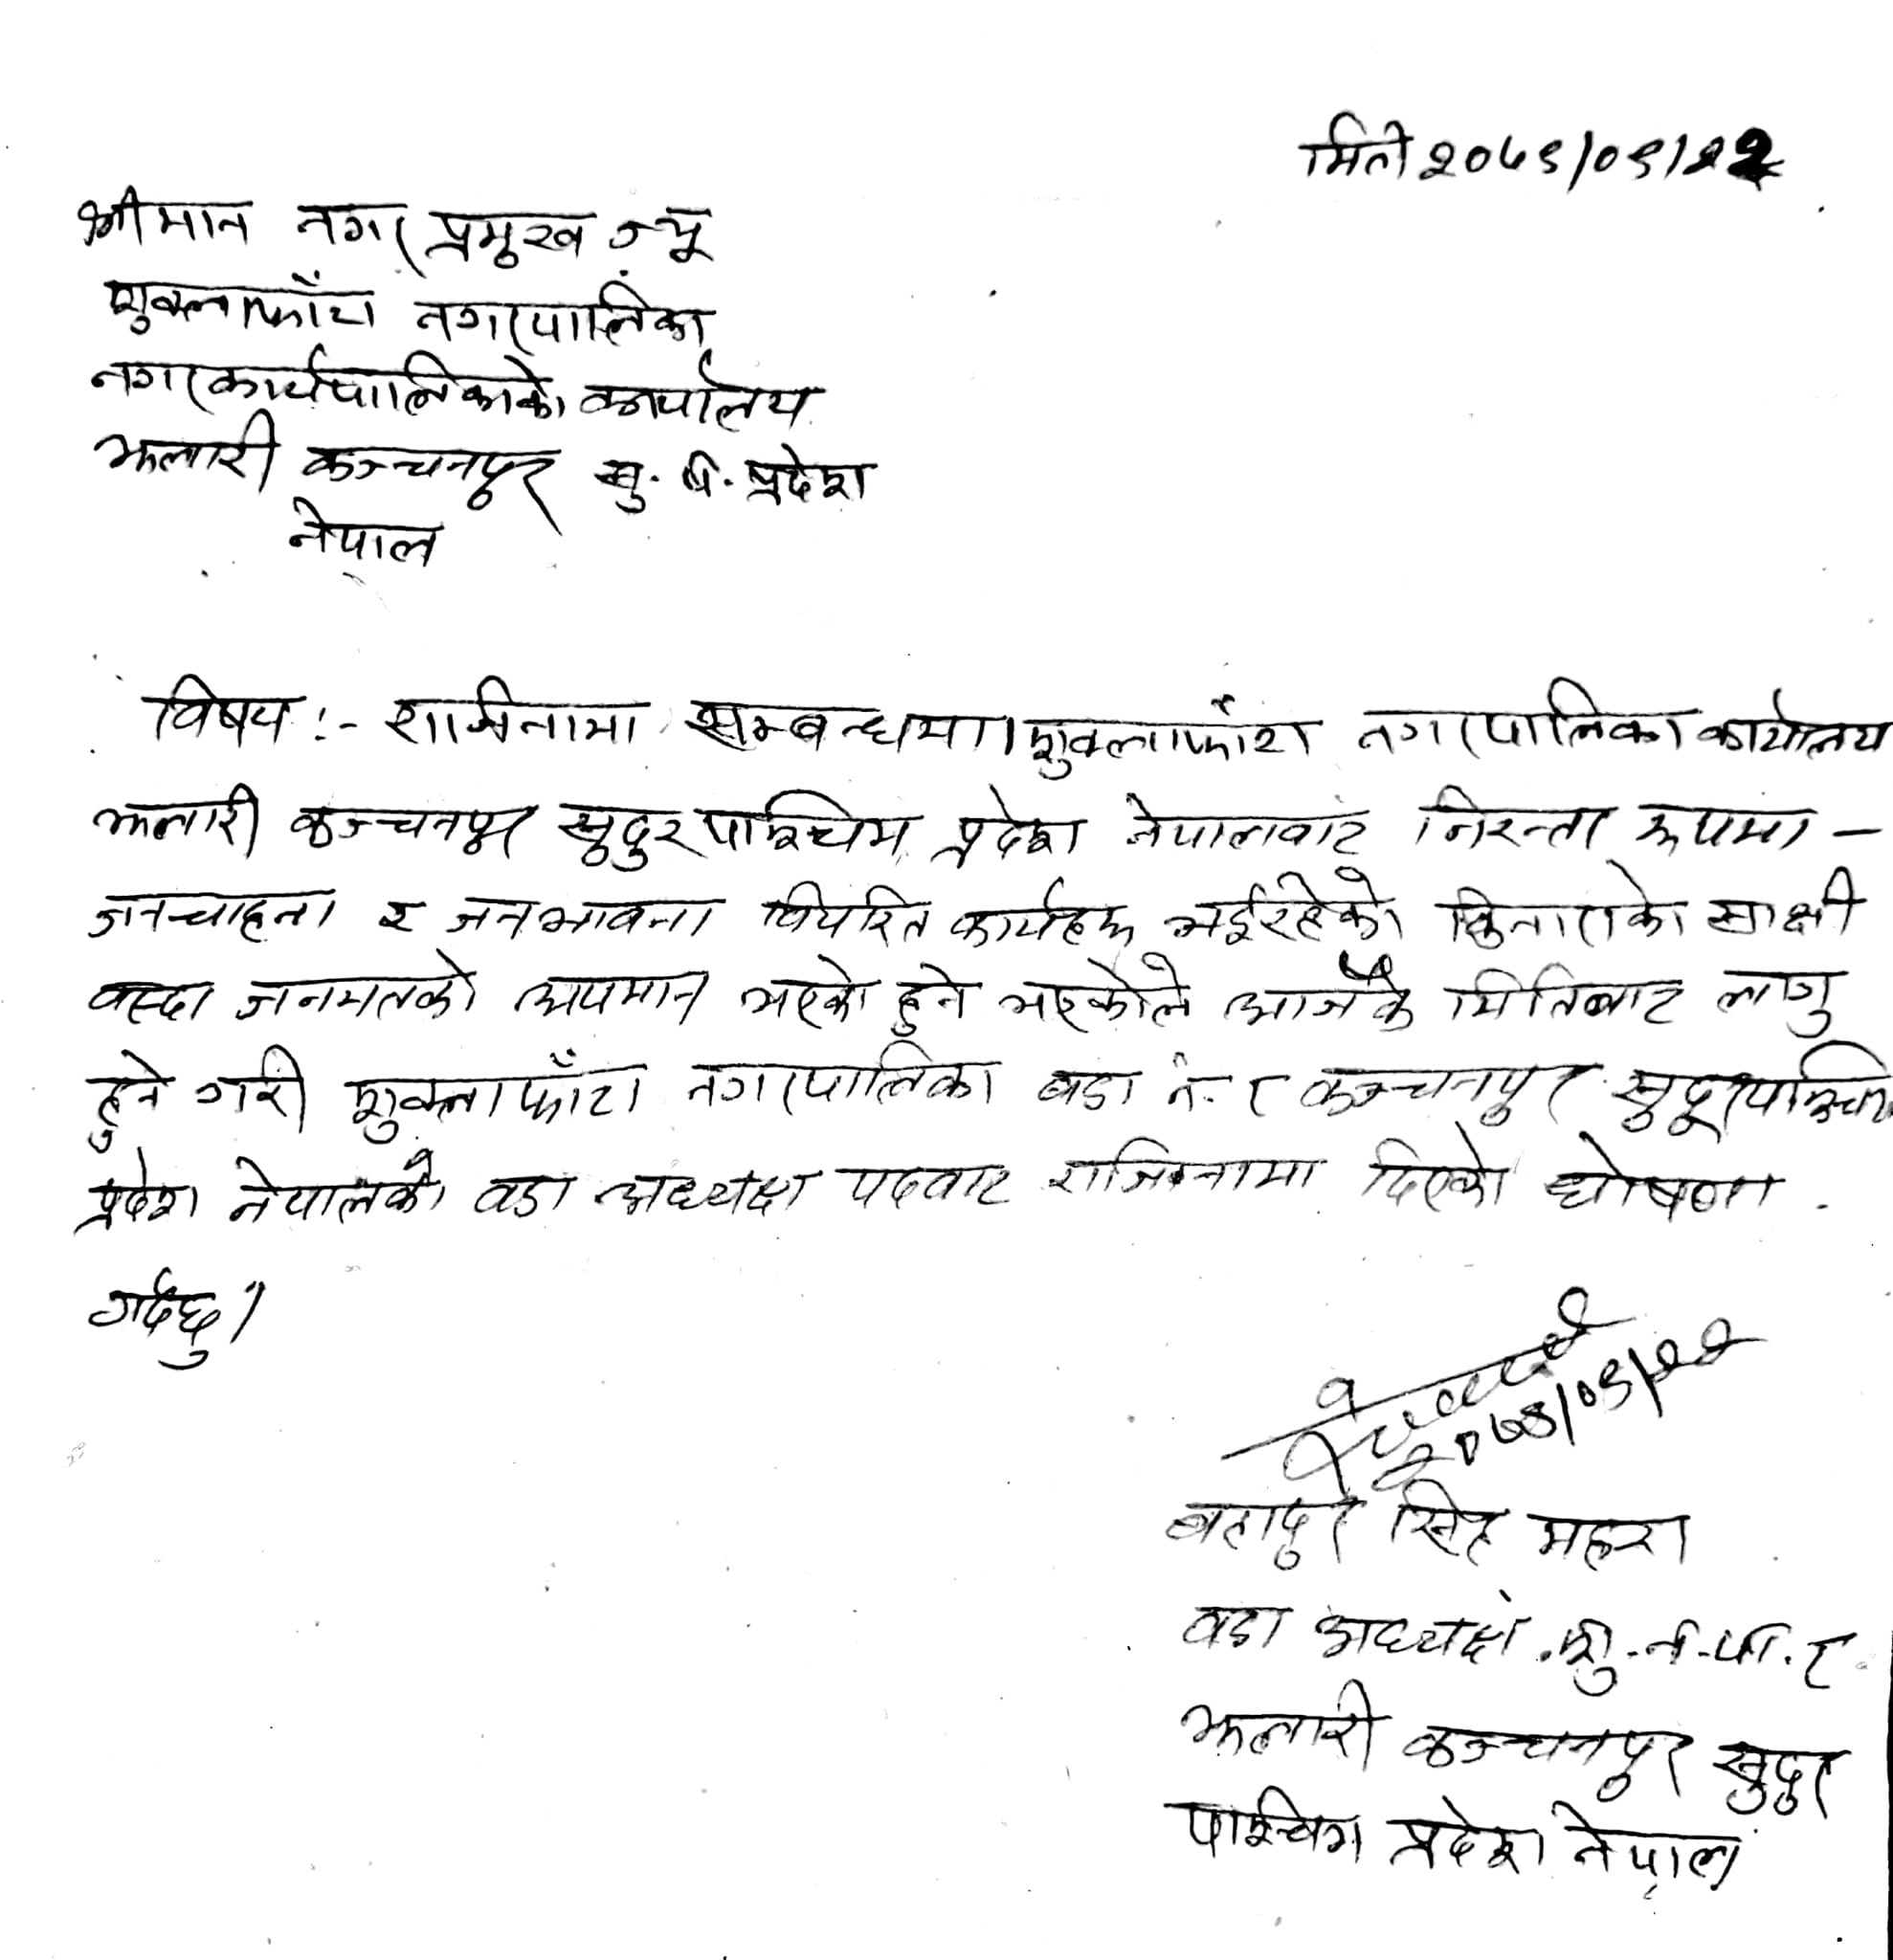 मिति २०७९/०९/२२
श्रीमान नगर प्रमुख ज्यू
शुक्लाफाँटा नगरपालिका
नगरकार्यपालिकाको कार्यालय
झलारी कञ्चनपुर सु.प. प्रदेश
नेपाल
विषय :- राजिनामा सम्बन्धमा। शुक्लाफाँटा नगरपालिका कार्यालय
झलारी कञ्चनपुर सुदुरपश्चिम प्रदेश नेपालबाट निरन्तर रुपमा -
जनचाहना र जनभावना विपरित कार्यहरु भईरहेको साक्षी
वस्दा जनमतको अपमान भएको हुने भएकोले आजकै मितिबाट लागु
हुने गरी शुक्लाफाँटा नगरपालिका वडा नं. कञ्चनपुर सुदूरपश्चिम
प्रदेश नेपालको वडा अध्यक्ष पदबाट राजिनामा दिएको घोषणा
गर्दछु।
२०७९/०९/२२
बहादुर सिंह महरा
वडा अध्यक्ष शु.न.पा.
झलारी कञ्चनपुर सुदुर
पश्चिम प्रदेश नेपाल